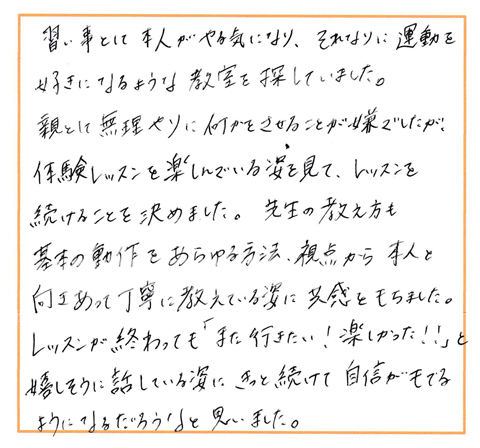 習い事として本人がやる気になり、それなりに運動を
好きになるような教室を探していました。
親として無理やりに何かをさせることが嫌でしたが、
体験レッスンを楽しんでいる姿を見て、レッスンを
続けることを決めました。先生の教え方も
基本の動作をあらゆる方法、視点から本人と
向きあって丁寧に教えている姿に共感をもちました。
レッスンが終わっても「また行きたい！楽しかった!!」と
嬉しそうに話している姿に きっと続けて自信がもてる
ようになるだろうなと思いました。